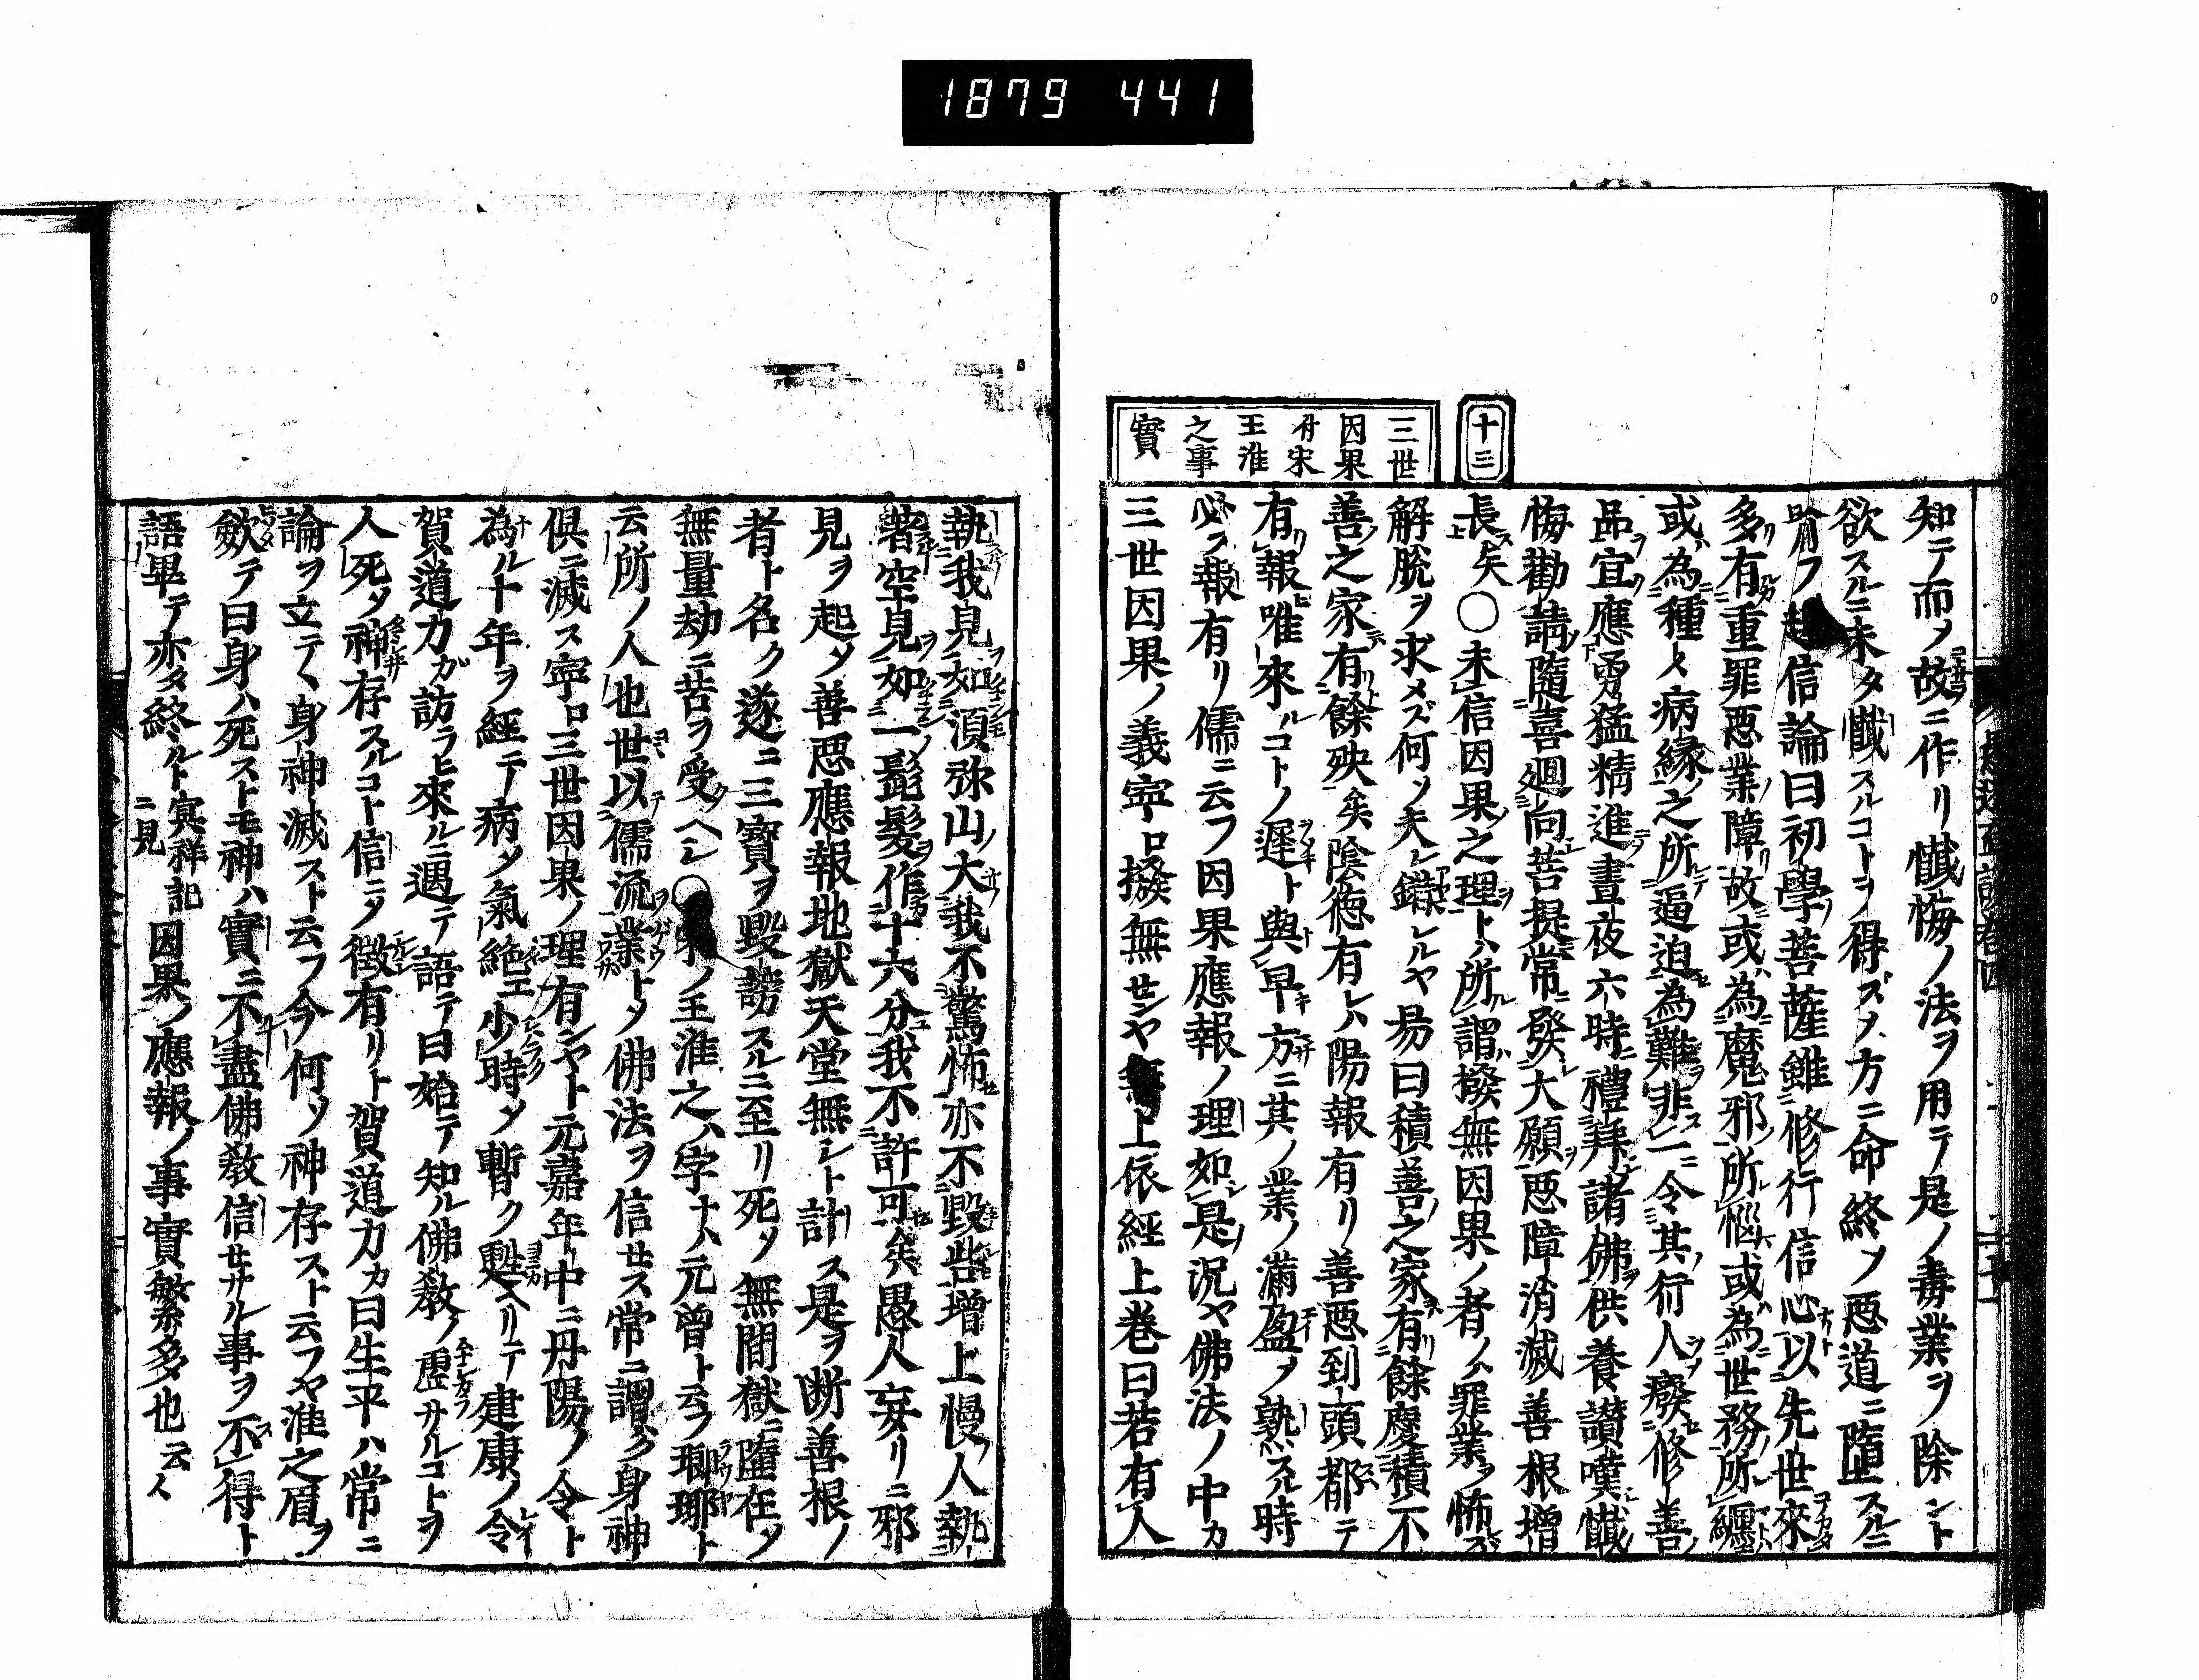 1879 441
十三
三世
因果
付宋
王淮
之事
實
知テ而メ故ニ作リ懺悔ノ法ヲ用テ是ノ毒業ヲ除ント
欲スルニ未タ懺スルコトヲ得ズメ方ニ命終ソ惡道ニ墮スルニ
喻フ起信論曰初學菩薩雖修行信心以先世來
多有重罪惡業障故或為魔邪所惱或為世務所纏
或為種〻病緣之所逼迫為難非一令其行人癈修善
品宜應勇猛精進晝夜六時禮拜諸佛供養讃嘆懺
悔勸請隨喜廻向菩提常發大願惡障消滅善根增
長矣○未信因果之理トハ所謂撥無因果ノ者ノハ罪業ヲ怖ズ
解脫ヲ求メズ何ソ夫レ錯レルヤ易曰積善之家有餘慶積不
善之家有餘殃矣陰徳有レハ陽報有リ善惡到頭都テ
有報唯來ルコトノ遲ト與早方ニ其ノ業ノ滿盈ソ熟スル時
必ラ報有リ儒ニ云フ因果應報ノ理如是況ヤ佛法ノ中カ
三世因果ノ義寧ロ撥無センヤ無上依經上巻曰若有人
執我見如須弥山大我不驚怖亦不毀呰增上慢人執
著空見如一髭髮作十六分我不許可矣愚人妄リニ邪
見ヲ起メ善惡應報地獄天堂無シト計ス是ヲ断善根ノ
者ト名ク遂ニ三寶ヲ毀謗スルニ至リ死ソ無間獄ニ墮在メ
無量劫ニ苦ヲ受クヘシ○宋ノ王淮之ハ字ナハ元曾ト云フ瑯耶ト
云所ノ人也世以儒流業トメ佛法ヲ信セス常ニ謂ハク身神
倶ニ滅ス寧ロ三世因果ノ理有ンヤト元嘉年中ニ丹陽ノ令ト
為ル十年ヲ經テ病メ氣絶エ少時メ暫ク甦ヘリテ建康ノ令
賀道力ガ訪ラヒ來ルニ遇テ語テ曰始テ知ル佛教ノ虛サルコトヲ
人死メ神存スルコト信ニメ徴有リト賀道力カ曰生平ハ常ニ
論ヲ立テヽ身神滅スト云フ今何ソ神存スト云フヤ淮之眉ヲ
歛テ曰身ハ死ストモ神ハ實ニ不盡佛教信セサル事ヲ不得ト
語畢テ亦タ終ルト冥祥記ニ見因果ノ應報ノ事實繁多也云〻